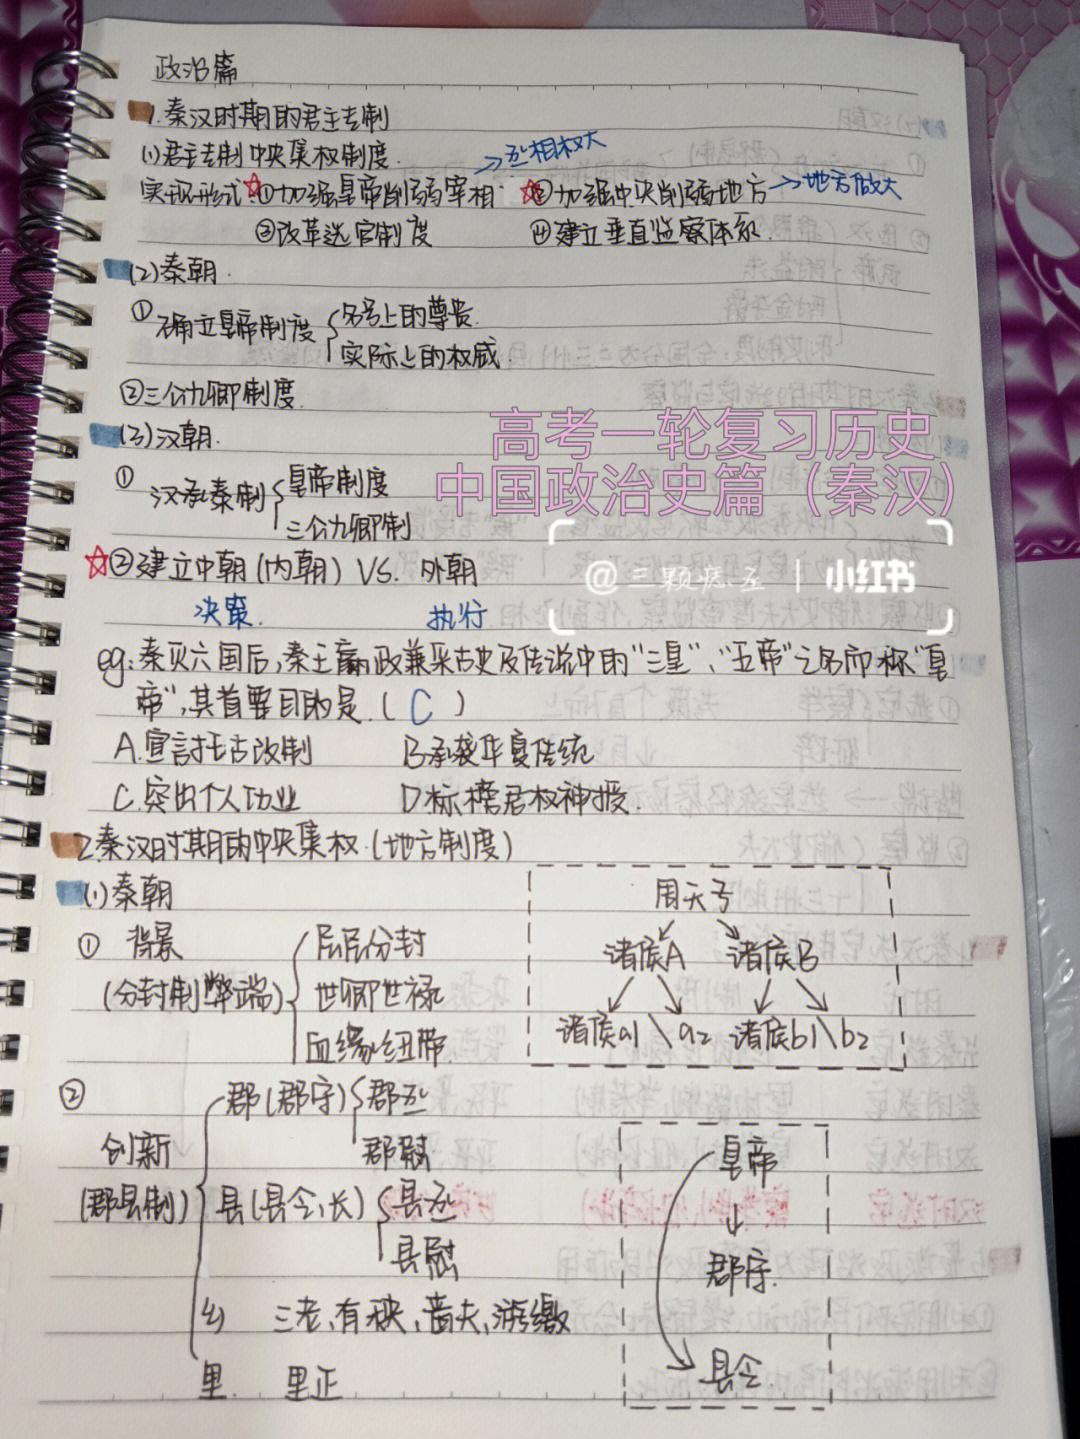 政治篇
1.秦汉时期的君主专制
(1)君主专制中央集权制度.
→丞相权大
实现形式☆①加强皇帝削弱宰相 ☆②加强中央削弱地方→地方做大
③改革选官制度 ④建立垂直监察体系.
(2)秦朝.
①确立皇帝制度{名号上的尊贵.
实际上的权威.
②三公九卿制度.
(3)汉朝.
①汉承秦制{皇帝制度
三公九卿制
☆②建立中朝(内朝) VS. 外朝
决策. 执行
eg:秦灭六国后,秦王嬴政兼采古史及传说中的"三皇"、"五帝"之名而称"皇
帝",其首要目的是.( C )
A.宣言托古改制 B.承袭华夏传统
C.突出个人功业 D.标榜君权神授.
2.秦汉时期的中央集权.(地方制度)
(1)秦朝
①背景
(分封制弊端)
层层分封
世卿世禄
血缘纽带
周天子
诸侯A 诸侯B
诸侯a1\a2 诸侯b1\b2
②
创新
(郡县制)
郡(郡守){郡丞
郡尉
县(县令、长){县丞
县尉
乡 三老、有秩、啬夫、游缴
里. 里正
皇帝
↓
郡守.
县令.
高考一轮复习历史
中国政治史篇（秦汉）
@三颗痣.至 | 小红书